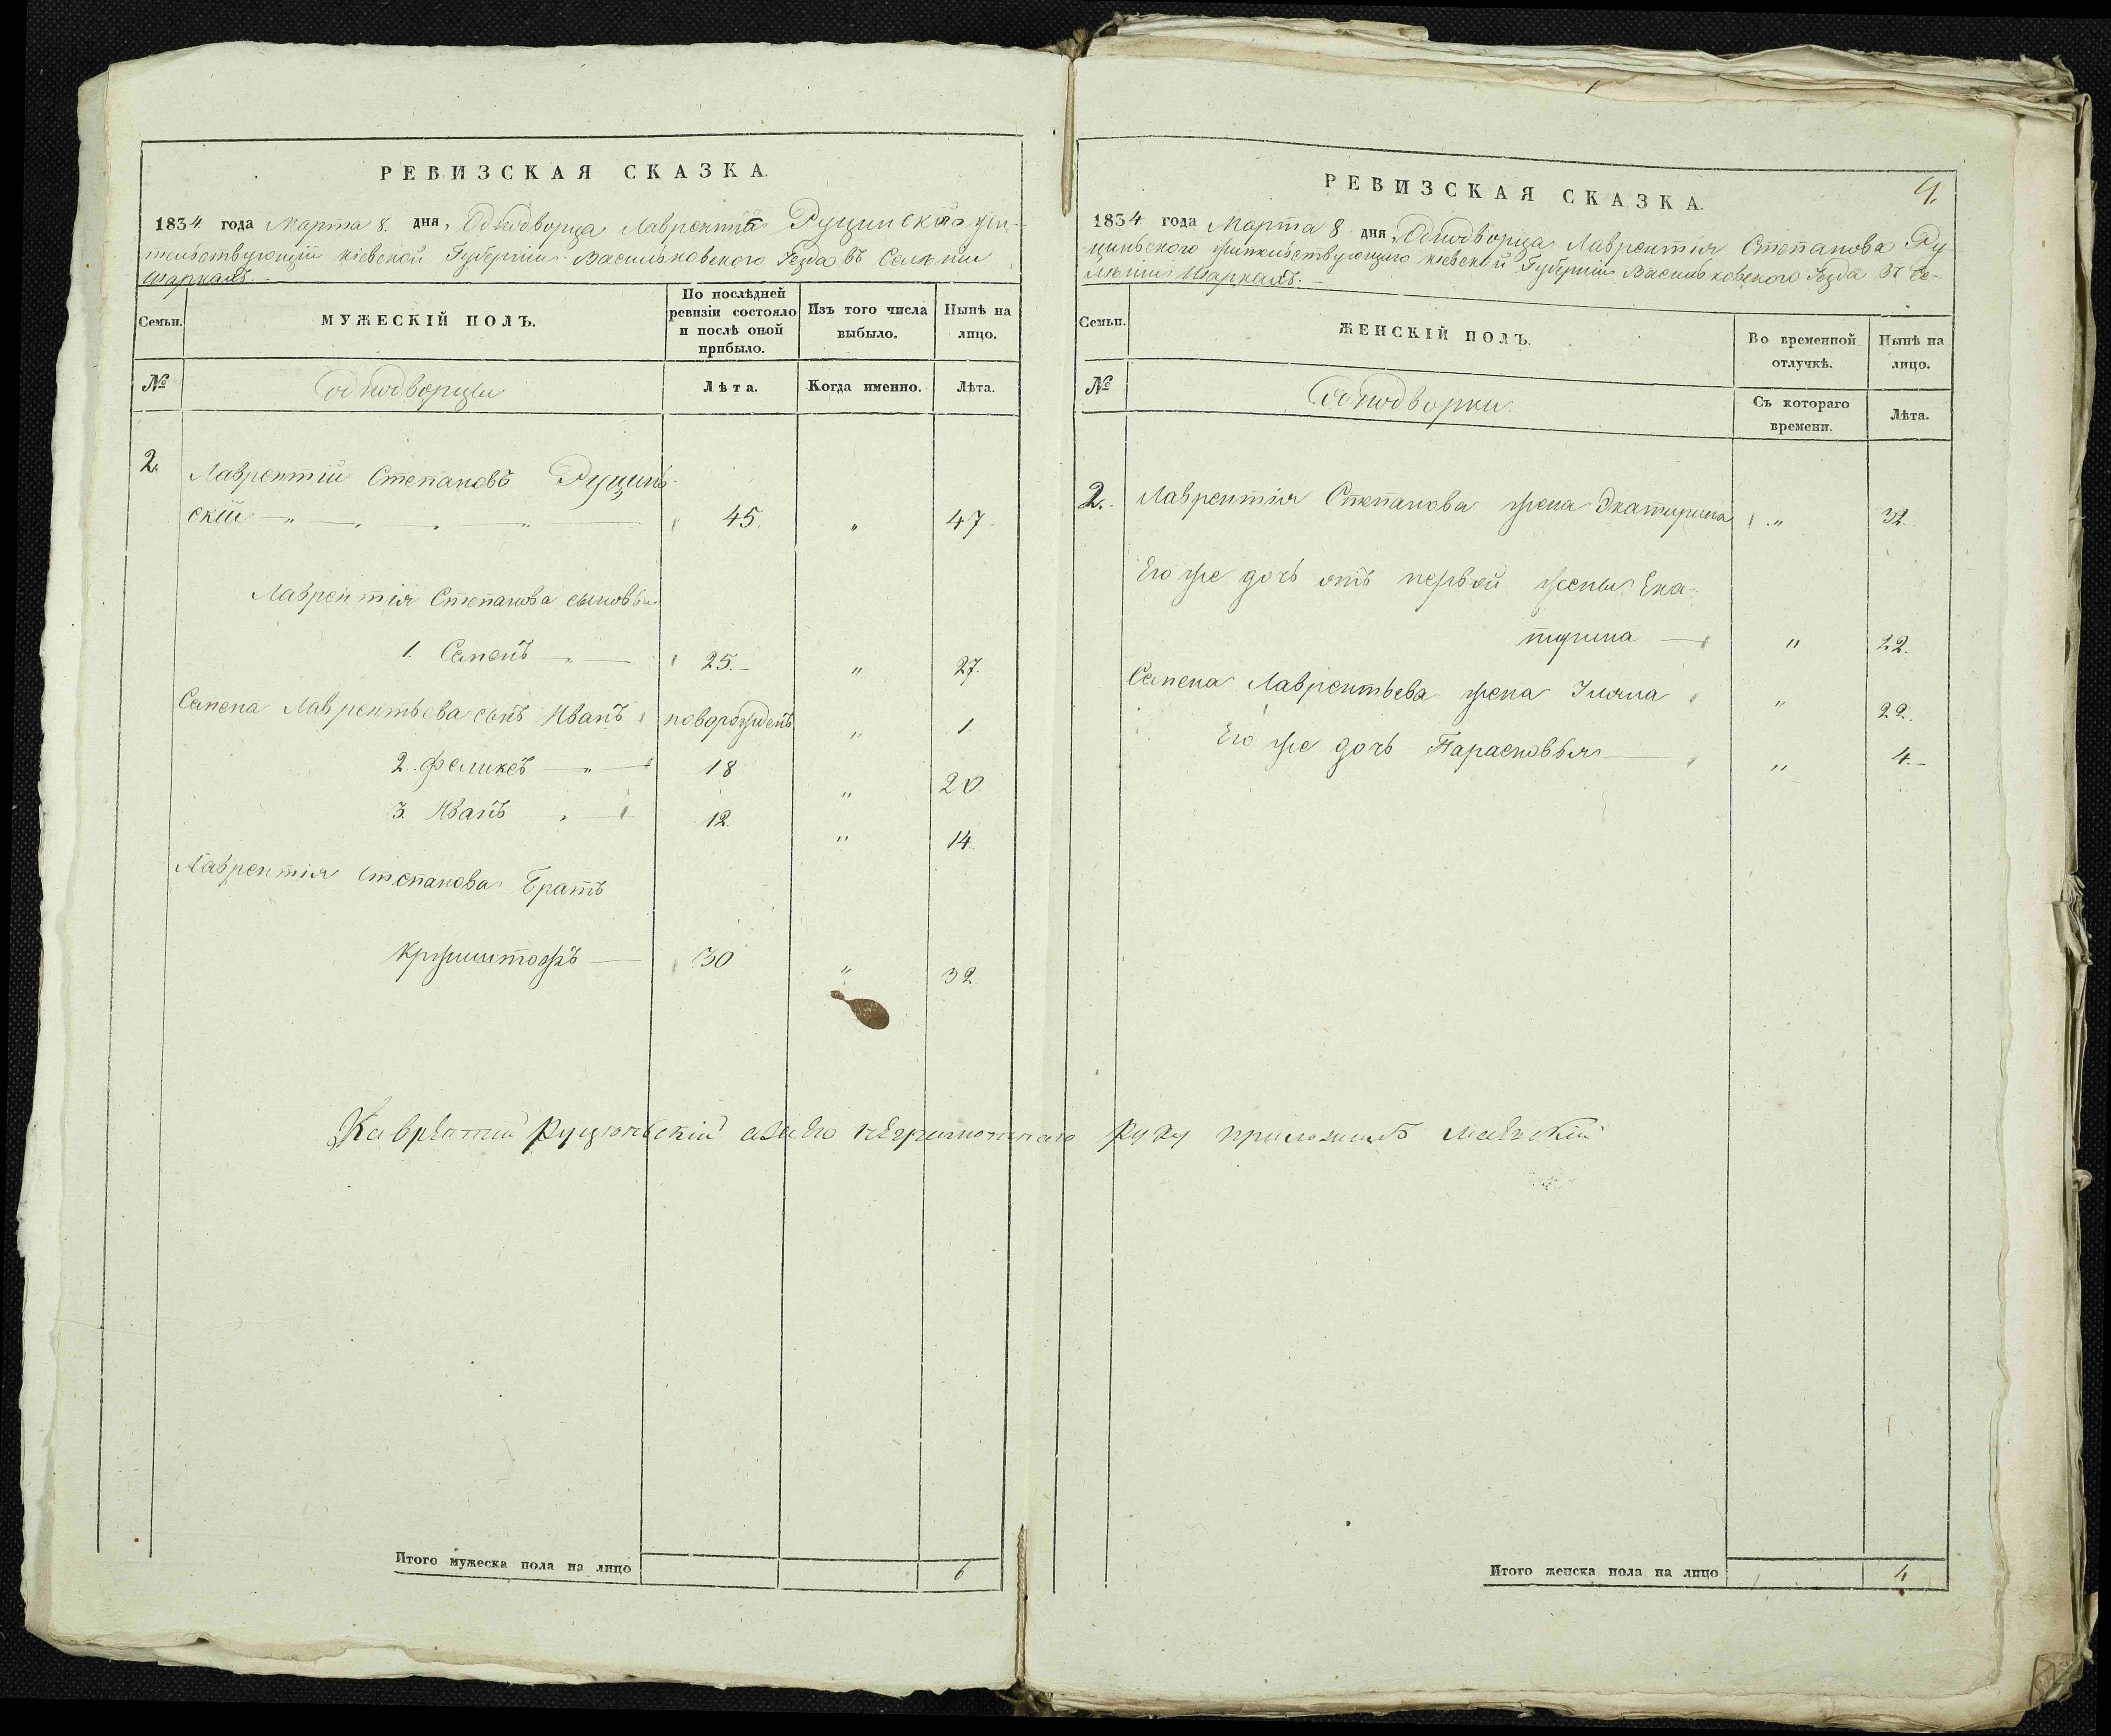 РЕВИЗСКАЯ СКАЗКА.
1834 года Марта 8. дня, Однодворца Лаврентія Руцинскаго жи-
тельствующій кіевской Губерніи Васильковского Уезда въ Селѣніи
Шаркахъ.
Семьи.
МУЖЕСКІЙ ПОЛЪ.
По послѣдней ревизіи состояло и послѣ оной прибыло.
Изъ того числа выбыло.
Нынѣ на лицо.
№
однодворцы
Лѣта.
Когда именно.
Лѣта.
2. Лаврентій Степановъ Руцинь-
скій 45. " 47.
Лаврентія Степанова сыновьи
1. Семенъ 25. " 27.
Семена Лаврентьева сынъ Иванъ новорожденъ " 1
2. Феликсъ 18 " 20
3. Иванъ 12. " 14.
Лаврентія Степанова Братъ
Кржиштофъ 30 " 32
Итого мужеска пола на лицо 6
РЕВИЗСКАЯ СКАЗКА.
4.
1834 года Марта 8 дня, Однодворца Лаврентія Степанова Ру
циньского жительствующего кіевской Губерніи Васильковского Уезда Въ Се-
лѣніи Шаркахъ.
Семьи.
ЖЕНСКІЙ ПОЛЪ.
Во временной отлучкѣ.
Нынѣ на лицо.
№
Однодворки
Съ котораго времени.
Лѣта.
2. Лаврентія Степанова жена Экатирина " 32.
Его же дочь отъ первой жены Ека-
тирина " 22.
Семена Лаврентьева жена " 22.
Его же дочь Парасковья " 4.
Итого женска пола на лицо 4
Лаврентий Руциньскій а за его неграмотнаго руку приложилъ